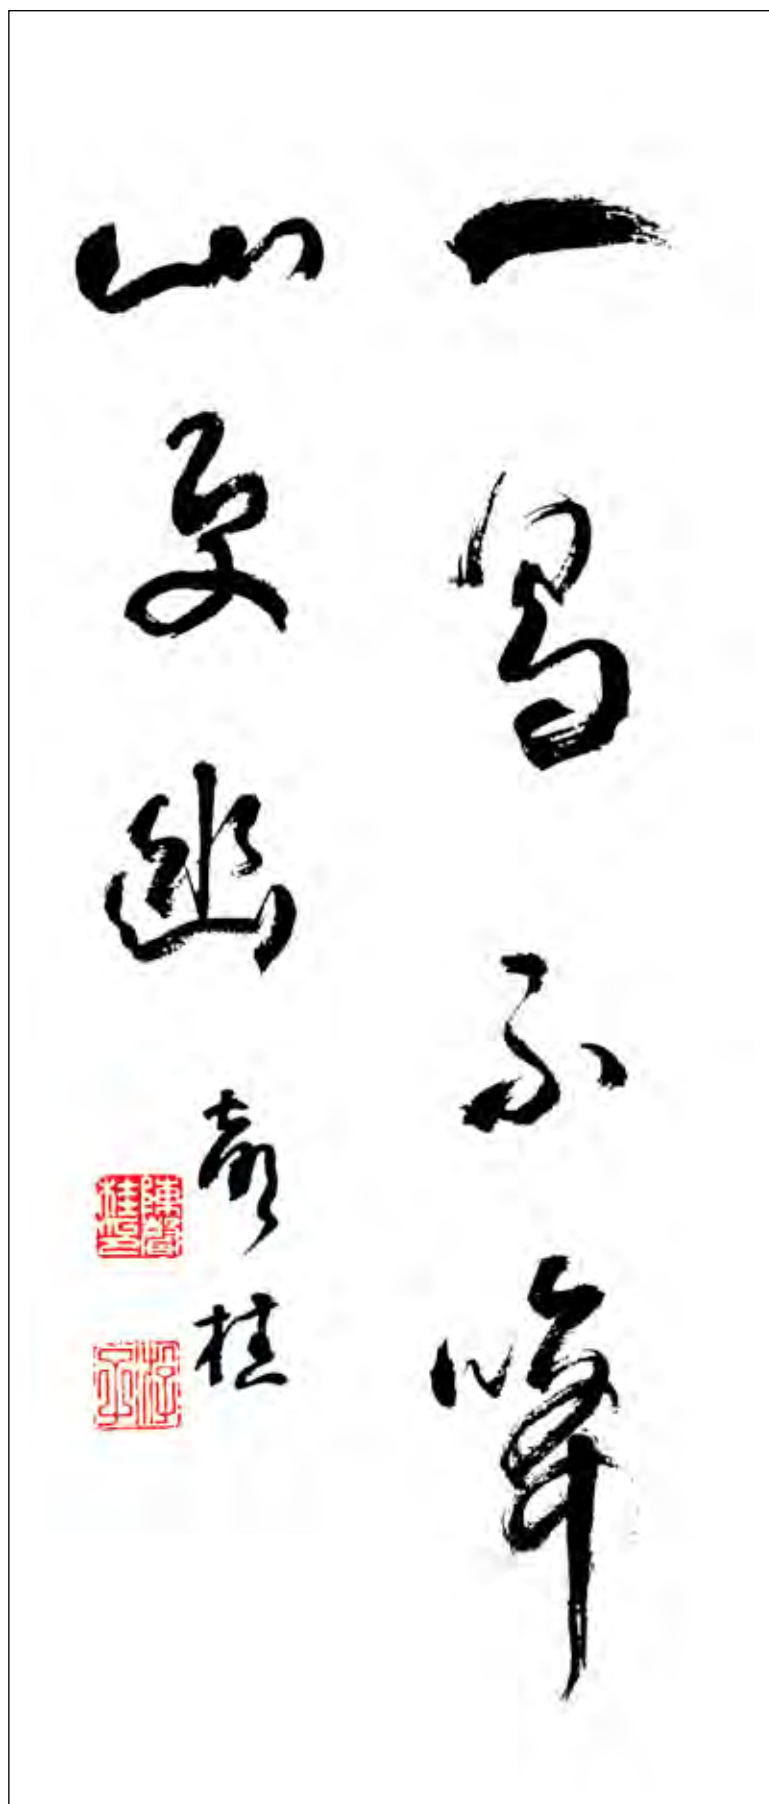 一鳥不啼
山更幽
聲桂
陳聲桂印